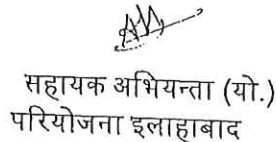 सहायक अभियन्ता (यो.)
परियोजना इलाहाबाद